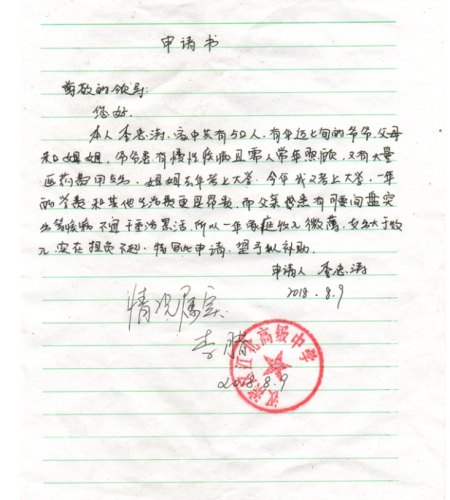 申请书
尊敬的领导:
您好.
本人李忠涛,家中共有5口人,有年迈七旬的爷爷,父母
和姐姐,爷爷患有慢性疾病且需人常年照顾,又有大量
医药费用支出,姐姐去年考上大学,今年我又考上大学,一年
的学费和其他生活费更是昂贵,而父亲患有腰间盘突
出等疾病不适于重活累活,所以一年家庭收入微薄,支出大于收
入,实在担负不起.特因此申请,望予以补助.
申请人 李忠涛
2018.8.9
情况属实
李腾
2018.8.9
江北高级中学